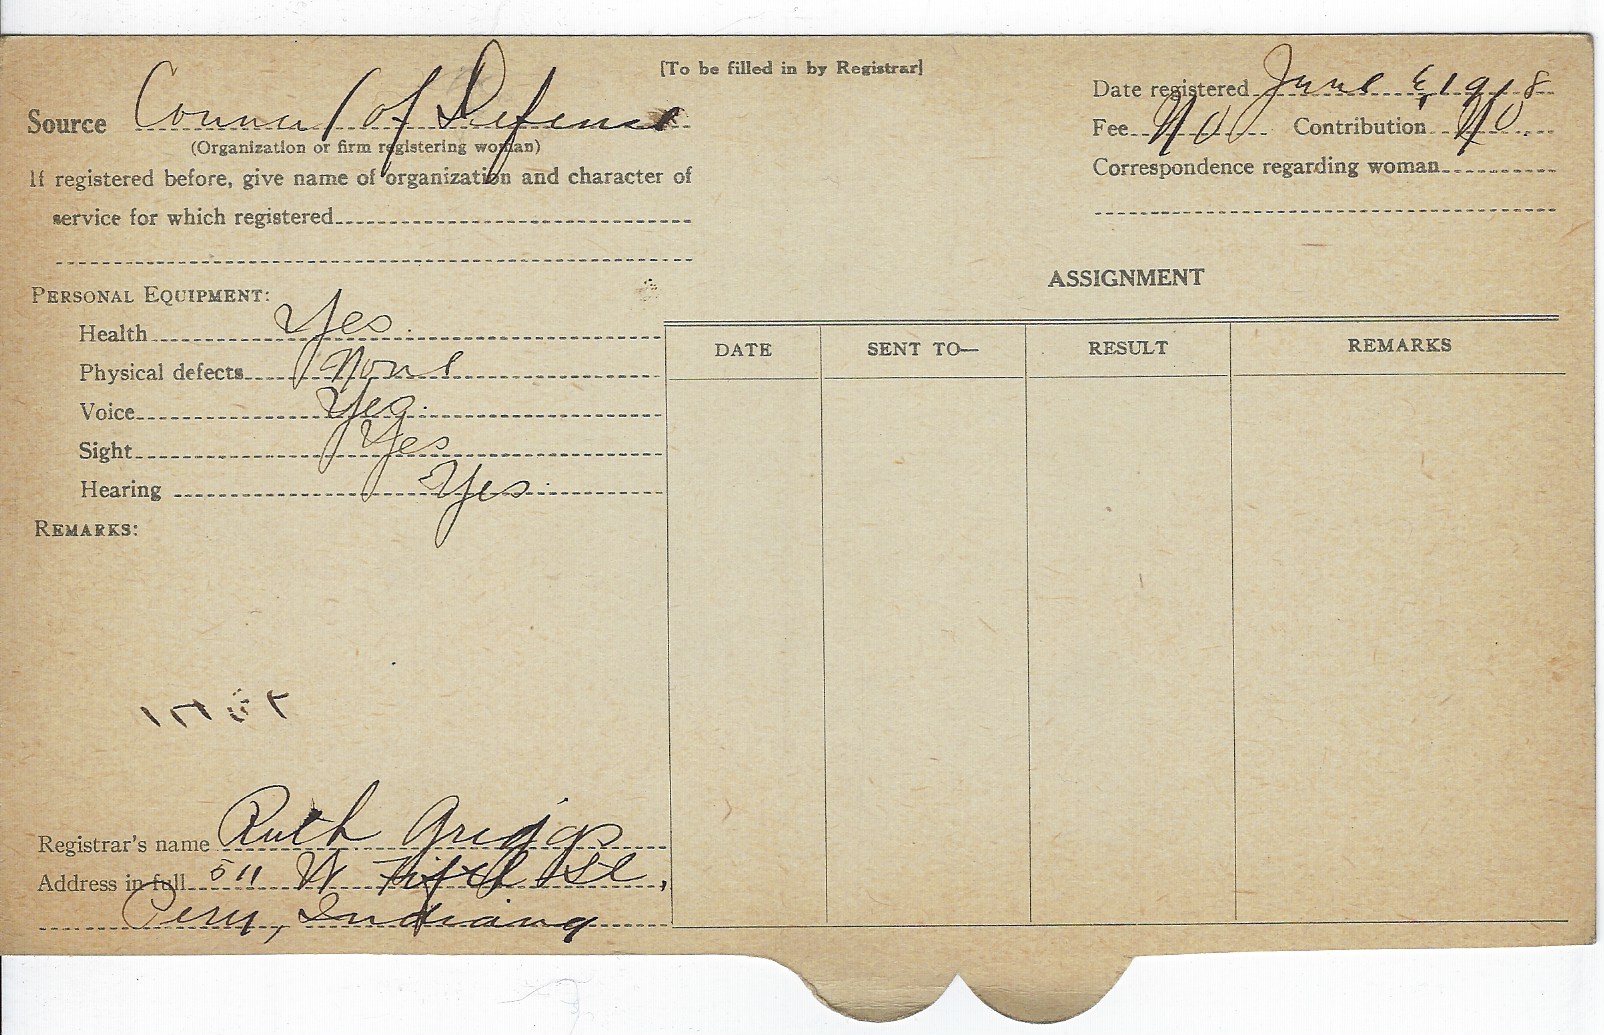 [To be filled in by Registrar]
Source Council of Defense
(Organization or firm registering woman)
If registered before, give name of organization and character of
service for which registered
Date registered June 6, 1918
Fee No Contribution No
Correspondence regarding woman
PERSONAL EQUIPMENT:
Health Yes.
Physical defects None
Voice Yes.
Sight Yes
Hearing Yes.
REMARKS:
ASSIGNMENT
DATE SENT TO— RESULT REMARKS
Registrar's name Ruth Griggs
Address in full 511 W Fifth St,
Peru, Indiana